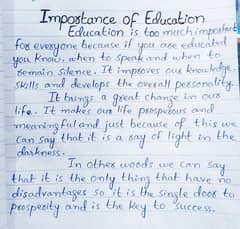 Importance of Education
Education is too much important
for everyone because if you are educated
you know, when to speak and when to
remain silence. It improves our knowledge,
skills and develops the overall personality.
It brings a great change in our
life. It makes our life prosperous and
meaningful and just because of this we
can say that it is a ray of light in the
darkness.
In other woods we can say
that it is the only thing that have no
disadvantages so it is the single door to
prosperity and is the key to success.